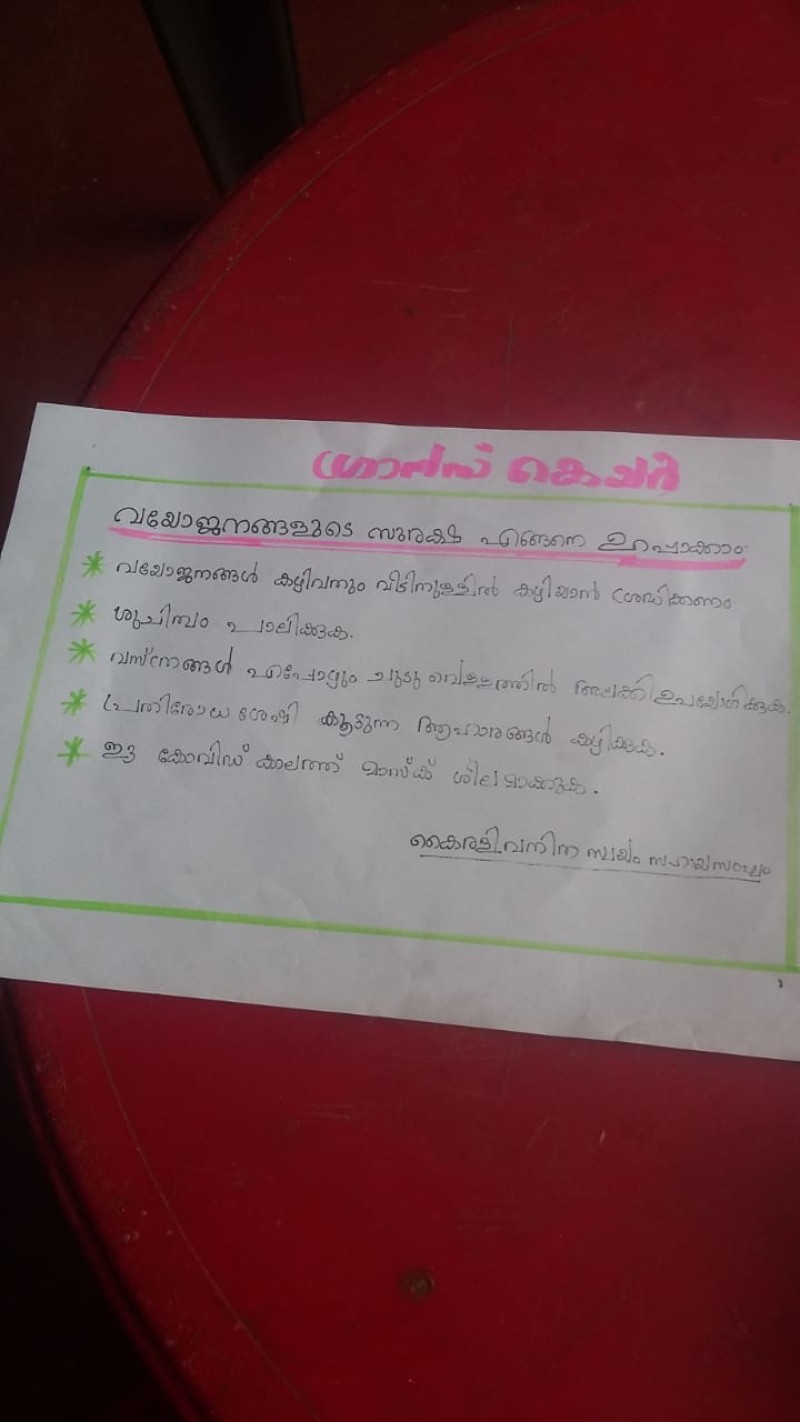 ഗ്രാൻസ് കെയർ
വയോജനങ്ങളുടെ സുരക്ഷ എങ്ങനെ ഉറപ്പാക്കാം
വയോജനങ്ങൾ കഴിവതും വീടിനുള്ളിൽ കഴിയാൻ ശ്രദ്ധിക്കണം
ശുചിത്വം പാലിക്കുക.
വസ്ത്രങ്ങൾ എപ്പോഴും ചൂടു വെള്ളത്തിൽ അലക്കി ഉപയോഗിക്കുക.
പ്രതിരോധ ശേഷി കൂട്ടുന്ന ആഹാരങ്ങൾ കഴിക്കുക.
ഈ കോവിഡ് കാലത്ത് മാസ്ക് ശീലമാക്കുക.
കൈരളി വനിത സ്വയം സഹായസംഘം